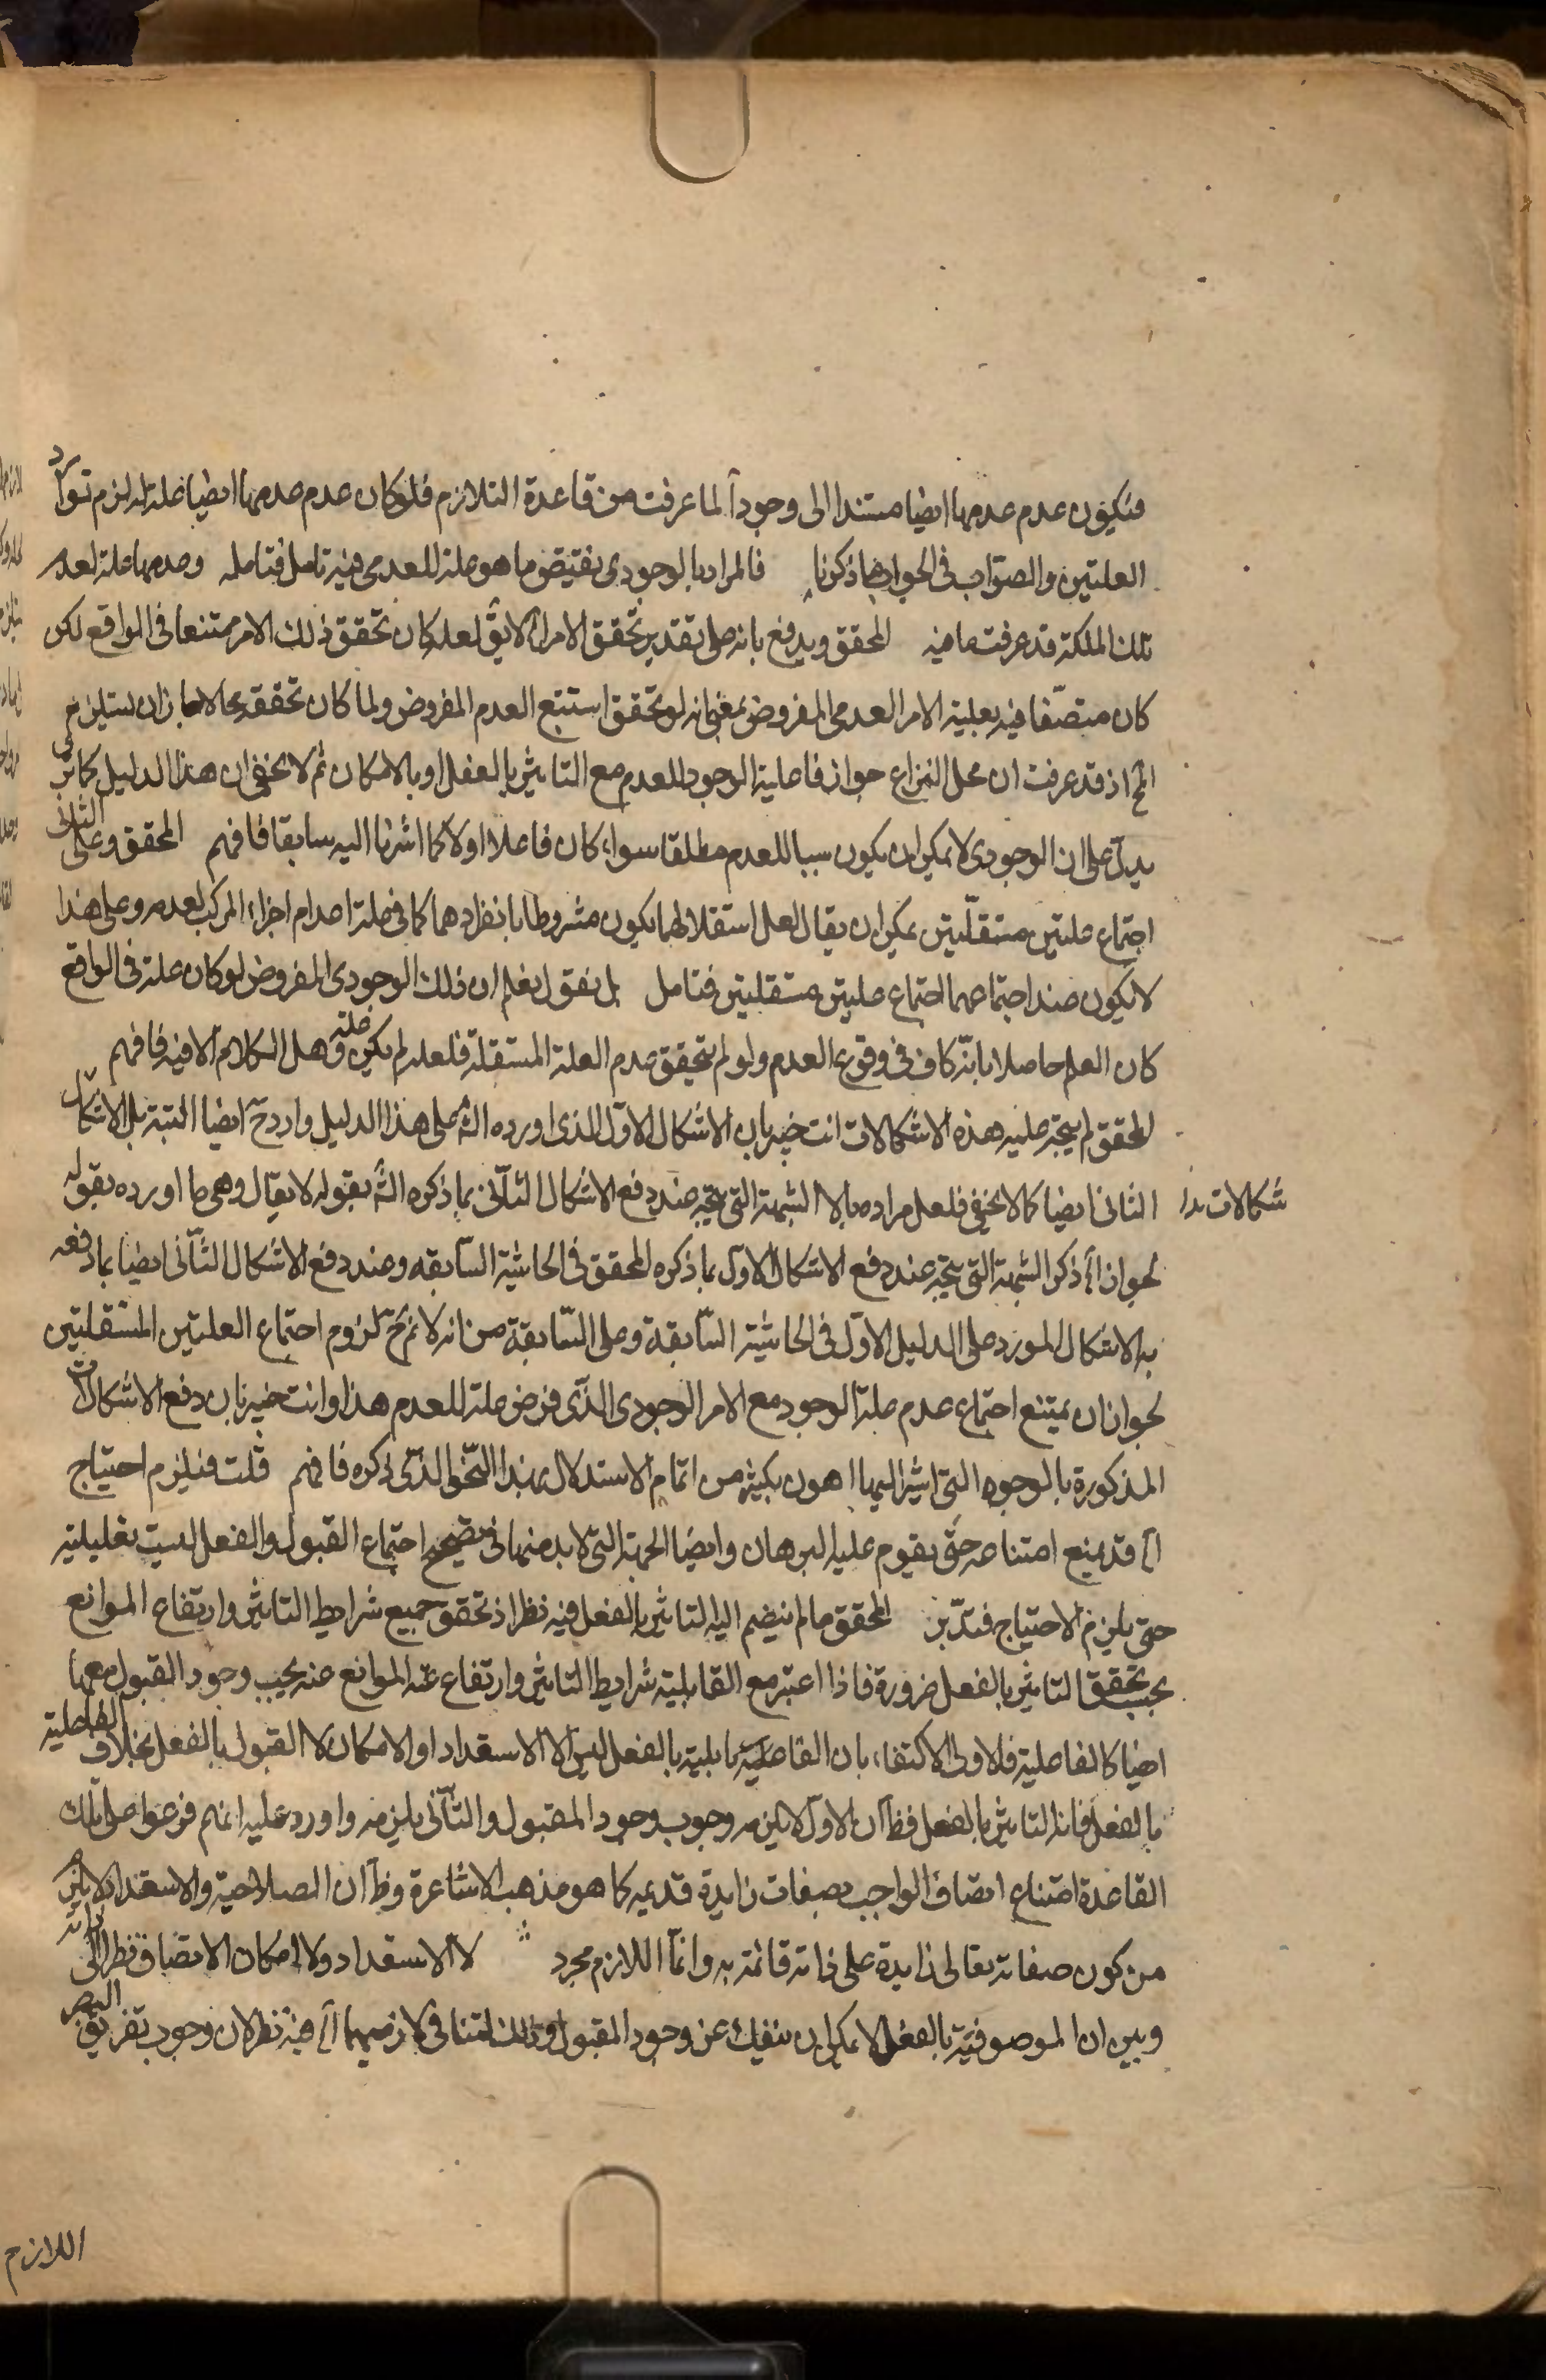 فيكون عدم عدمها ايضا مستندا الى وجود آ لما عرفت من قاعدة التلازم فلو كان عدم عدمها ايضا علة له لزم توارد
العلتين والصواب في الجواب ما ذكرنا فالمراد بالوجودى نقيض ما هو علة للعدمى فيه تامل فتامله وعدمها علة لعدم
تلك الملكة قد عرفت ما فيه المحقق ويدفع بانه على تقدير تحقق الامر آه لا يق لعله كان تحقق ذلك الامر ممتنعا في الواقع لكن
كان متصفا فيه بعلية الامر العدمى المفروض بمعنى انه لو تحقق استتبع العدم المفروض ولما كان تحققه محالا جاز ان يستلزم
المح اذ قد عرفت ان محل النزاع جواز فاعلية الوجود للعدم مع التاثير بالفعل او بالامكان ثم لا يخفى ان هذا الدليل كما ترى
يدل على ان الوجودى لا يمكن ان يكون سببا للعدم مطلقا سواء كان فاعلا او لا كما اشرنا اليه سابقا فافهم المحقق وعلى الثانى
اجتماع علتين مستقلتين يمكن ان يقال لعل استقلالهما يكون مشروطا بانفرادهما كما في علة اعدام اجزاء المركب لعدمه وعلى هذا
لا يكون عند اجتماعهما اجتماع علتين مستقلتين فتامل بل نقول نعلم ان ذلك الوجودى المفروض لو كان علة في الواقع
كان العلم حاصلا بانه كاف في وقوع العدم ولو لم يتحقق عدم العلة المستقلة فلعله لم يكن علة وهل الكلام الا فيه فافهم
المحقق لم يتجه عليه هذه الاشكالات انت خبير بان الاشكال الاول الذى اورده الش على هذا الدليل وارد ح ايضا البتة بل الاشكال
الثانى ايضا كما لا يخفى فلعل مراده بالا الشبهة التى يتجه عند دفع الاشكال الثانى بما ذكره الش بقوله لا يقال وهى ما اورده بقوله
شكالات ندا
لجواز آه ذكر الشبهة التى يتجه عند دفع الاشكال الاول بما ذكره المحقق في الحاشية السابقة وعند دفع الاشكال الثانى ايضا بما دفعه
به الاشكال المورد على الدليل الاول في الحاشية السابقة وعلى السابقة من انه لا نم ح لزوم اجتماع العلتين المستقلتين
لجواز ان يمتنع اجتماع عدم علة الوجود مع الامر الوجودى الذى فرض علة للعدم هذا وانت خبير بان دفع الاشكالات
المذكورة بالوجوه التى اشير اليها اهون بكثير من اتمام الاستدلال بهذا النحو الذى ذكره فافهم قلت فيلزم احتياج
آه قد يمنع امتناعه حتى يقوم عليه البرهان وايضا الجهة التى لا بد منها في تصحيح اجتماع القبول والفعل ليست تعليلية
حتى يلزم الاحتياج فتدبر المحقق ما لم ينضم اليه التاثير بالفعل فيه نظر اذ تحقق جميع شرايط التاثير وارتفاع الموانع
يجب تحقق التاثير بالفعل ضرورة فاذا اعتبر مع القابلية شرايط التاثير وارتفاع الموانع عنه يجب وجود القبول معها
ايضا كالفاعلية فالاولى الاكتفاء بان القابلية بالفعل ليس الا الاستعداد او الامكان لا القبول بالفعل بخلاف الفاعلية
بالفعل فانه التاثير بالفعل فظ ان الاول لا يلزمه وجوب وجود المقبول والثانى يلزمه واورد عليه انهم فرعوا على تلك
القاعدة امتناع اتصاف الواجب بصفات زايدة قديمه كما هو مذهب الاشاعرة وظ ان الصلاحية والاستعداد لا يلزم
من كون صفاته تعالى زايدة على ذاته قائمة به وانما اللازم مجرد لا الاستعداد ولا امكان الاتصاف نظرا الى ذاته
وبين ان الموصوفية بالفعل لا يمكن ان ينفك عن وجود المقبول وذلك لتنافى لازميهما آه فيه نظر لان وجوب تفريق البصر
اللازم